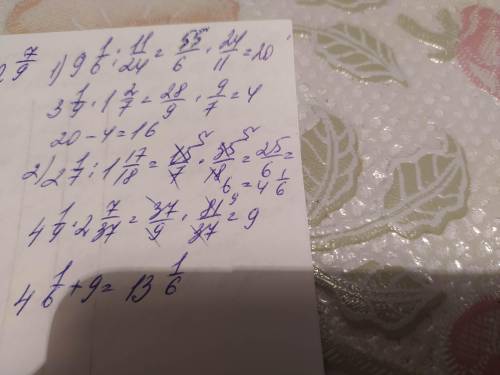 2 7/9 1) 9 1/6 : 11/24 = 55/6 · 24/11 = 20
3 1/9 · 1 2/7 = 28/9 · 9/7 = 4
20 - 4 = 16
2) 2 1/7 · 1 17/18 = 15/7 · 35/18 = 25/6 = 5 5 6
= 4 1/6
4 1/9 · 2 7/37 = 37/9 · 81/37 = 9 9
4 1/6 + 9 = 13 1/6